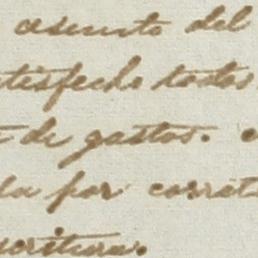 asunto del
tisfecho todos
de gastos.
da por corrat
critura.